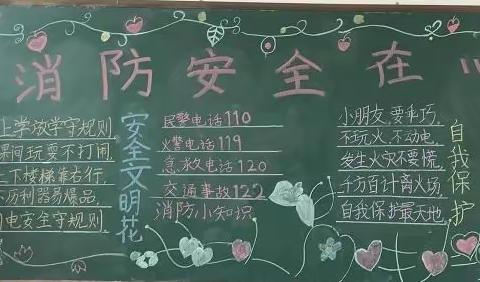 消防安全在
上学放学守规则,
课间玩耍不打闹,
上下楼梯靠右行,
利器易爆品,
电安全守规则,
安全文明花
民警电话110
火警电话119
急救电话120
交通事故122
消防小知识
小朋友,要乖巧,
不玩火,不动电,
发生火灾不要慌,
千方百计离火场,
自我保护最天地,
自我保护